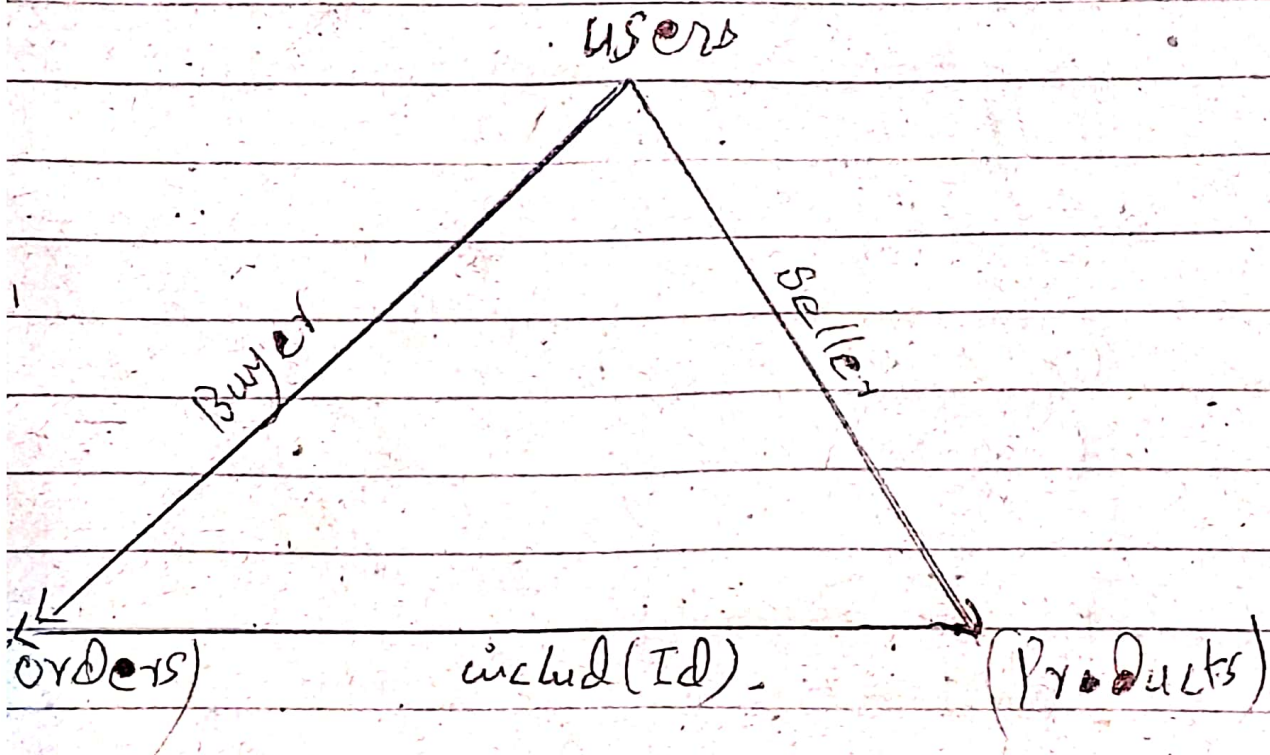 users
Buyer
Seller
orders)
includ(Id).
(Products)